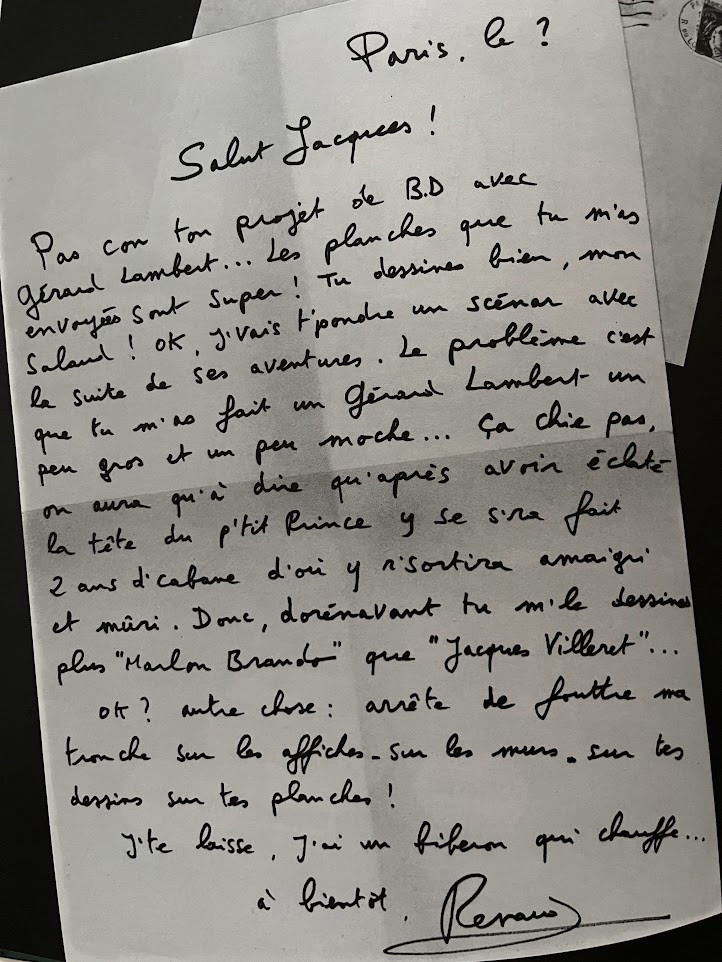 Paris, le ?
Salut Jacques !
Pas con ton projet de B.D avec
Gérard Lambert... Les planches que tu m'as
envoyées sont super ! Tu dessines bien, mon
salaud ! OK, j'vais t'pondre un scénar avec
la suite de ses aventures. Le problème c'est
que tu m'as fait un Gérard Lambert un
peu gros et un peu moche... Ça chie pas,
on aura qu'à dire qu'après avoir éclaté
la tête du p'tit Prince y se s'ra fait
2 ans d'cabane d'où y r'sortira amaigri
et mûri. Donc, dorénavant tu m'le dessines
plus "Marlon Brando" que "Jacques Villeret"...
OK ? autre chose : arrête de fouttre ma
tronche sur les affiches - sur les murs - sur tes
dessins sur tes planches !
J'te laisse, j'ai un biberon qui chauffe...
à bientôt,
Renaud